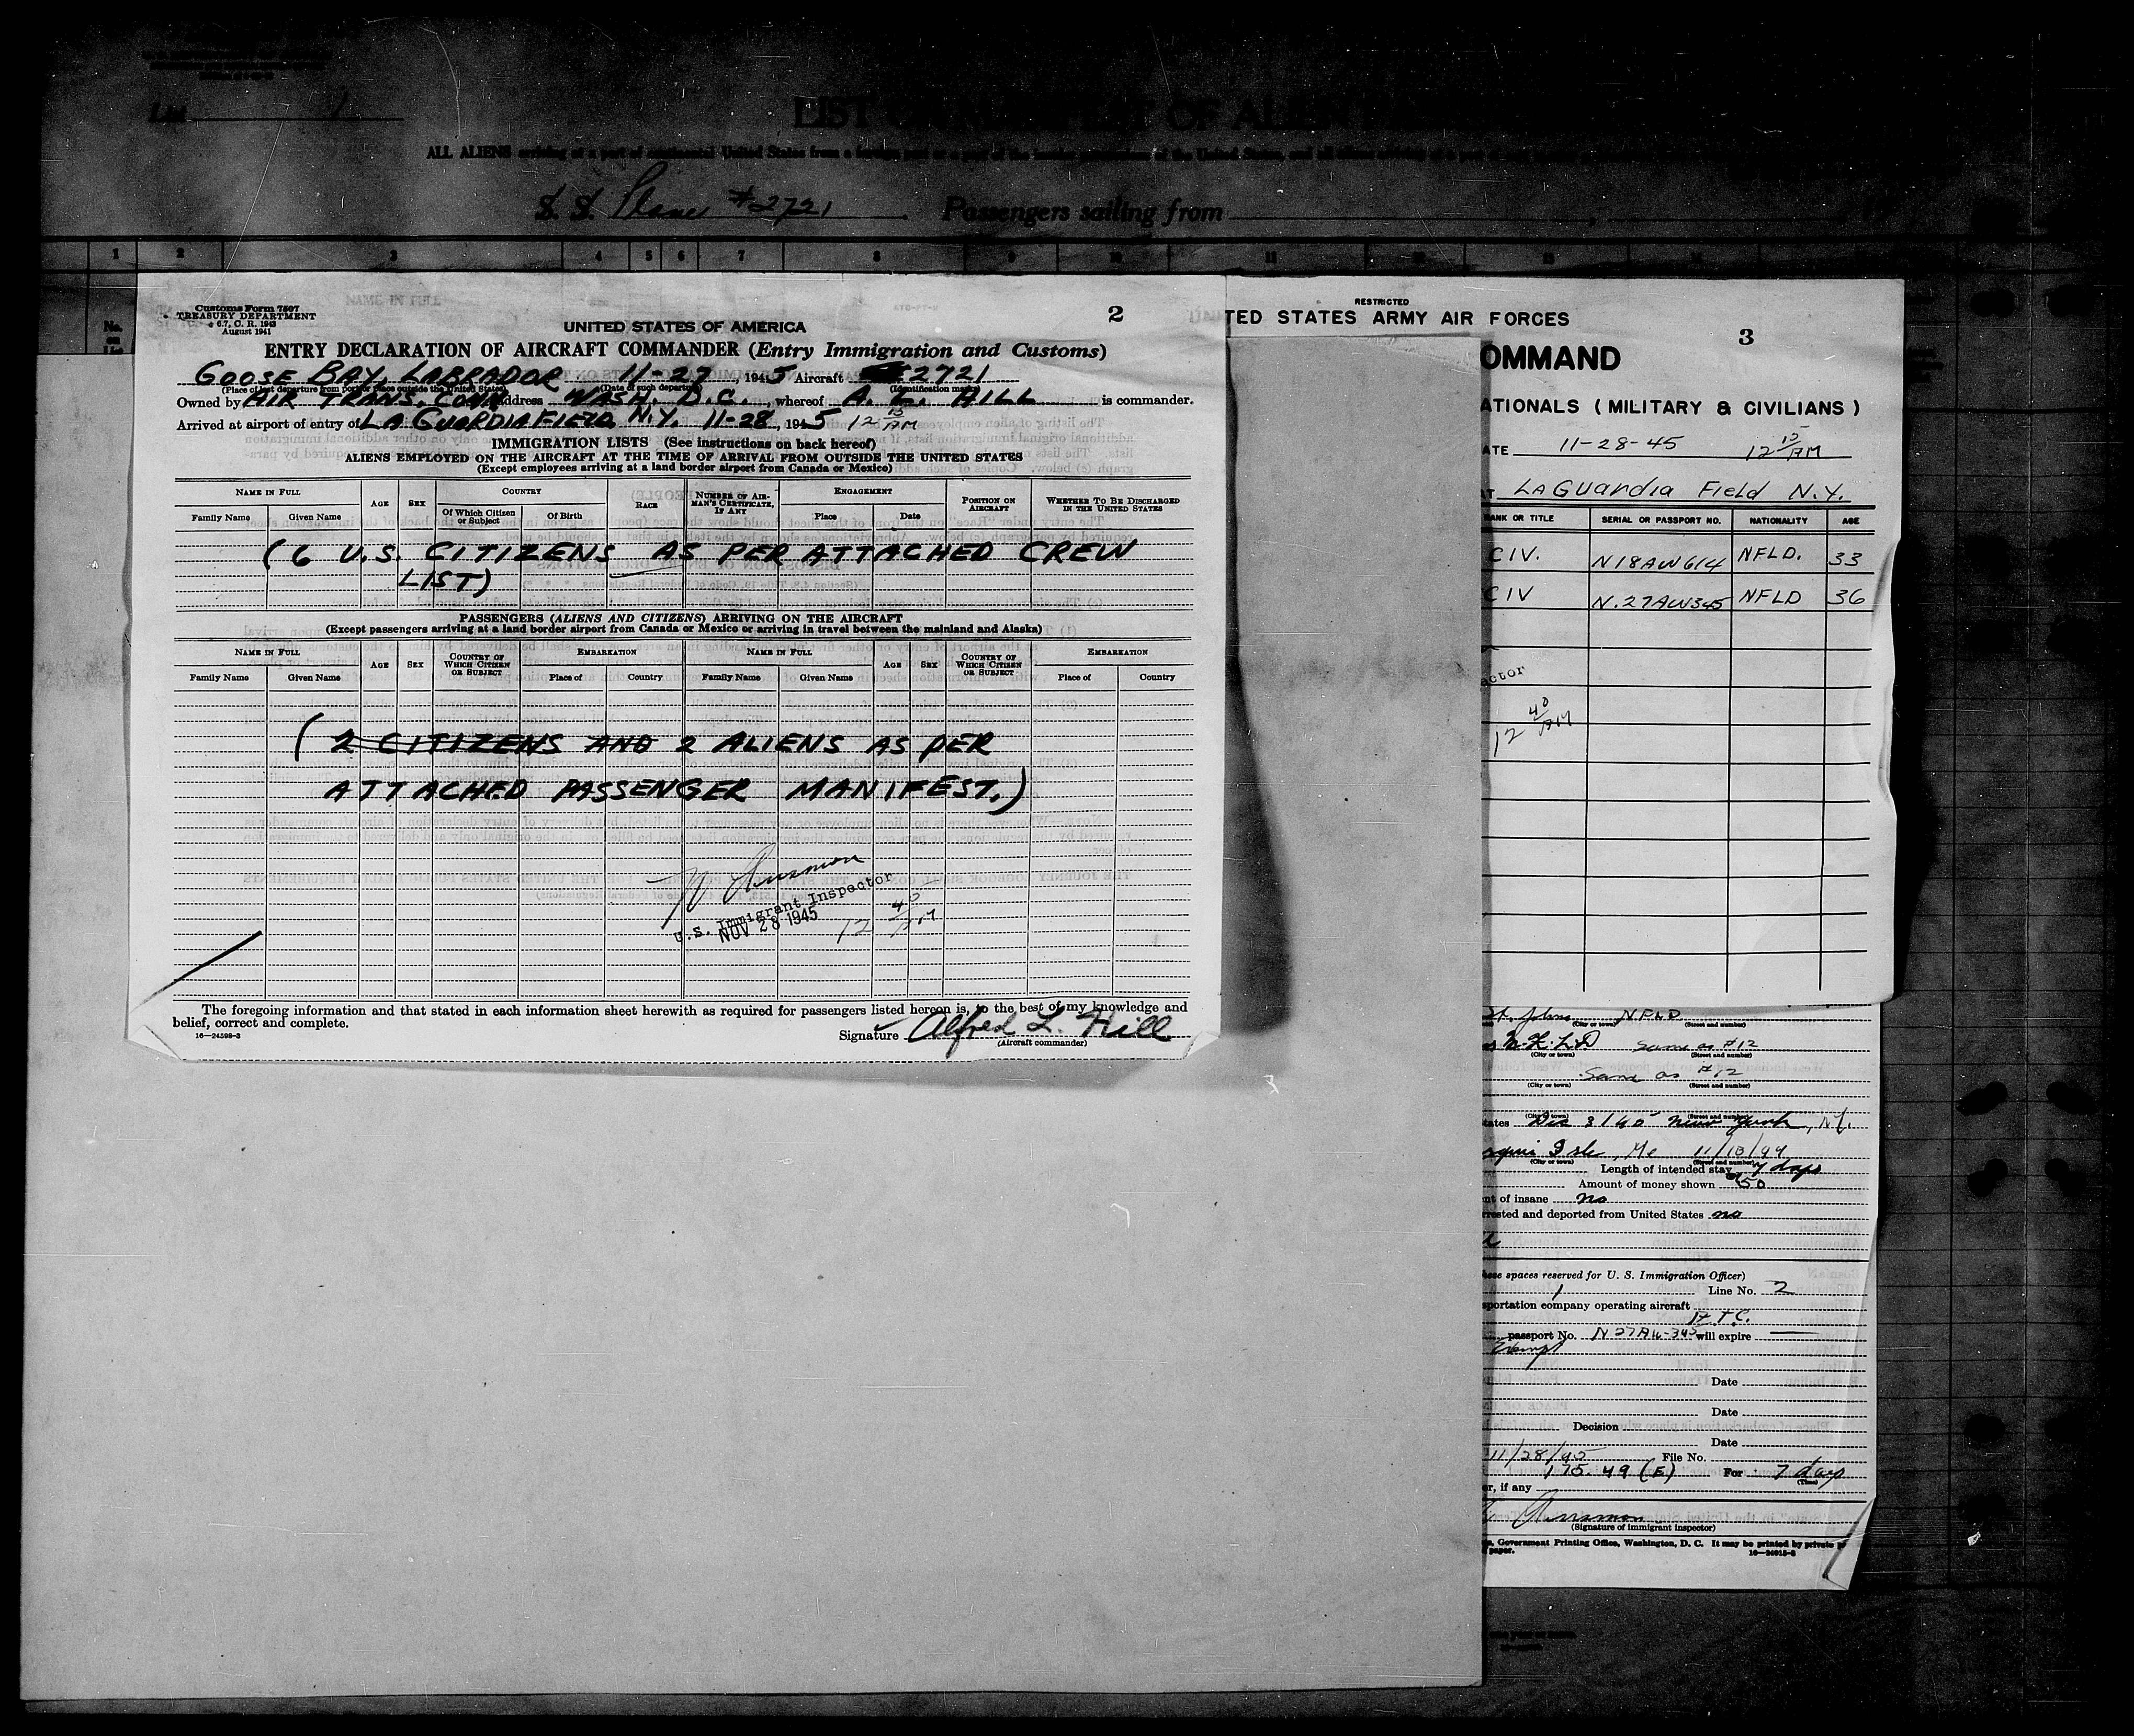 List 1
LIST OR MANIFEST OF ALIEN
ALL ALIENS arriving at a port of continental United States from a foreign port or a port of the insular possessions of the United States, and all aliens arriving at a port of
S. S. Plane #2721 Passengers sailing from
1 2 3 4 5 6 7 8 9 10 11 12 13 14
No.
on
List
Customs Form 7507
TREASURY DEPARTMENT
6.7, C. R. 1943
August 1941
2
UNITED STATES OF AMERICA
ENTRY DECLARATION OF AIRCRAFT COMMANDER (Entry Immigration and Customs)
GOOSE BAY, LABRADOR 11-27, 1945 Aircraft 2721
(Place of last departure from port or place outside the United States) (Date of such departure) (Identification marks)
Owned by AIR TRANS. COMM Address WASH. D.C., whereof A. L. HILL is commander.
Arrived at airport of entry of LA GUARDIA FIELD, N.Y. 11-28, 1945 12 15 AM
IMMIGRATION LISTS (See instructions on back hereof)
ALIENS EMPLOYED ON THE AIRCRAFT AT THE TIME OF ARRIVAL FROM OUTSIDE THE UNITED STATES
(Except employees arriving at a land border airport from Canada or Mexico)
NAME IN FULL AGE SEX COUNTRY RACE NUMBER OF AIRMAN'S CERTIFICATE, IF ANY ENGAGEMENT POSITION ON AIRCRAFT WHETHER TO BE DISCHARGED IN THE UNITED STATES
Family Name Given Name Of Which Citizen or Subject Of Birth Place Date
(6 U.S. CITIZENS AS PER ATTACHED CREW
LIST)
PASSENGERS (ALIENS AND CITIZENS) ARRIVING ON THE AIRCRAFT
(Except passengers arriving at a land border airport from Canada or Mexico or arriving in travel between the mainland and Alaska)
NAME IN FULL AGE SEX COUNTRY OF WHICH CITIZEN OR SUBJECT EMBARKATION NAME IN FULL AGE SEX COUNTRY OF WHICH CITIZEN OR SUBJECT EMBARKATION
Family Name Given Name Place of Country Family Name Given Name Place of Country
(2 CITIZENS AND 2 ALIENS AS PER
ATTACHED PASSENGER MANIFEST.)
U.S. Immigrant Inspector
NOV 28 1945 12 40 AM
The foregoing information and that stated in each information sheet herewith as required for passengers listed hereon is, to the best of my knowledge and
belief, correct and complete.
16—24598-3
Signature Alfred L. Hill
(Aircraft commander)
RESTRICTED
TED STATES ARMY AIR FORCES
3
OMMAND
ATIONALS (MILITARY & CIVILIANS)
ATE 11-28-45 12 15 AM
AT LA Guardia Field N.Y.
ANK OR TITLE SERIAL OR PASSPORT NO. NATIONALITY AGE
CIV. N18AW614 NFLD. 33
CIV N.27AW345 NFLD 36
ector
12 40 AM
St. Johns NFLD
(City or town) (Street and number)
N.F.L.D Same as #12
(City or town) (Street and number)
Same as #12
(City or town) (Street and number)
tates Dec 3/40 New York, N.Y.
(City or town) (Street and number)
esque Isle, Me 11/10/44
(City or town) (Street and number)
Length of intended stay 7 days
Amount of money shown $50
nt of insane no
rrested and deported from United States no
hese spaces reserved for U. S. Immigration Officer)
1 Line No. 2
sportation company operating aircraft
A.T.C.
passport No. N27AW-345 will expire
Exempt
Date
Date
Decision
Date
11/28/45 File No.
175.49 (E) For 7 days
(Time)
er, if any
(Signature of immigrant inspector)
Government Printing Office, Washington, D. C. It may be printed by private
paper. 16—24915-2